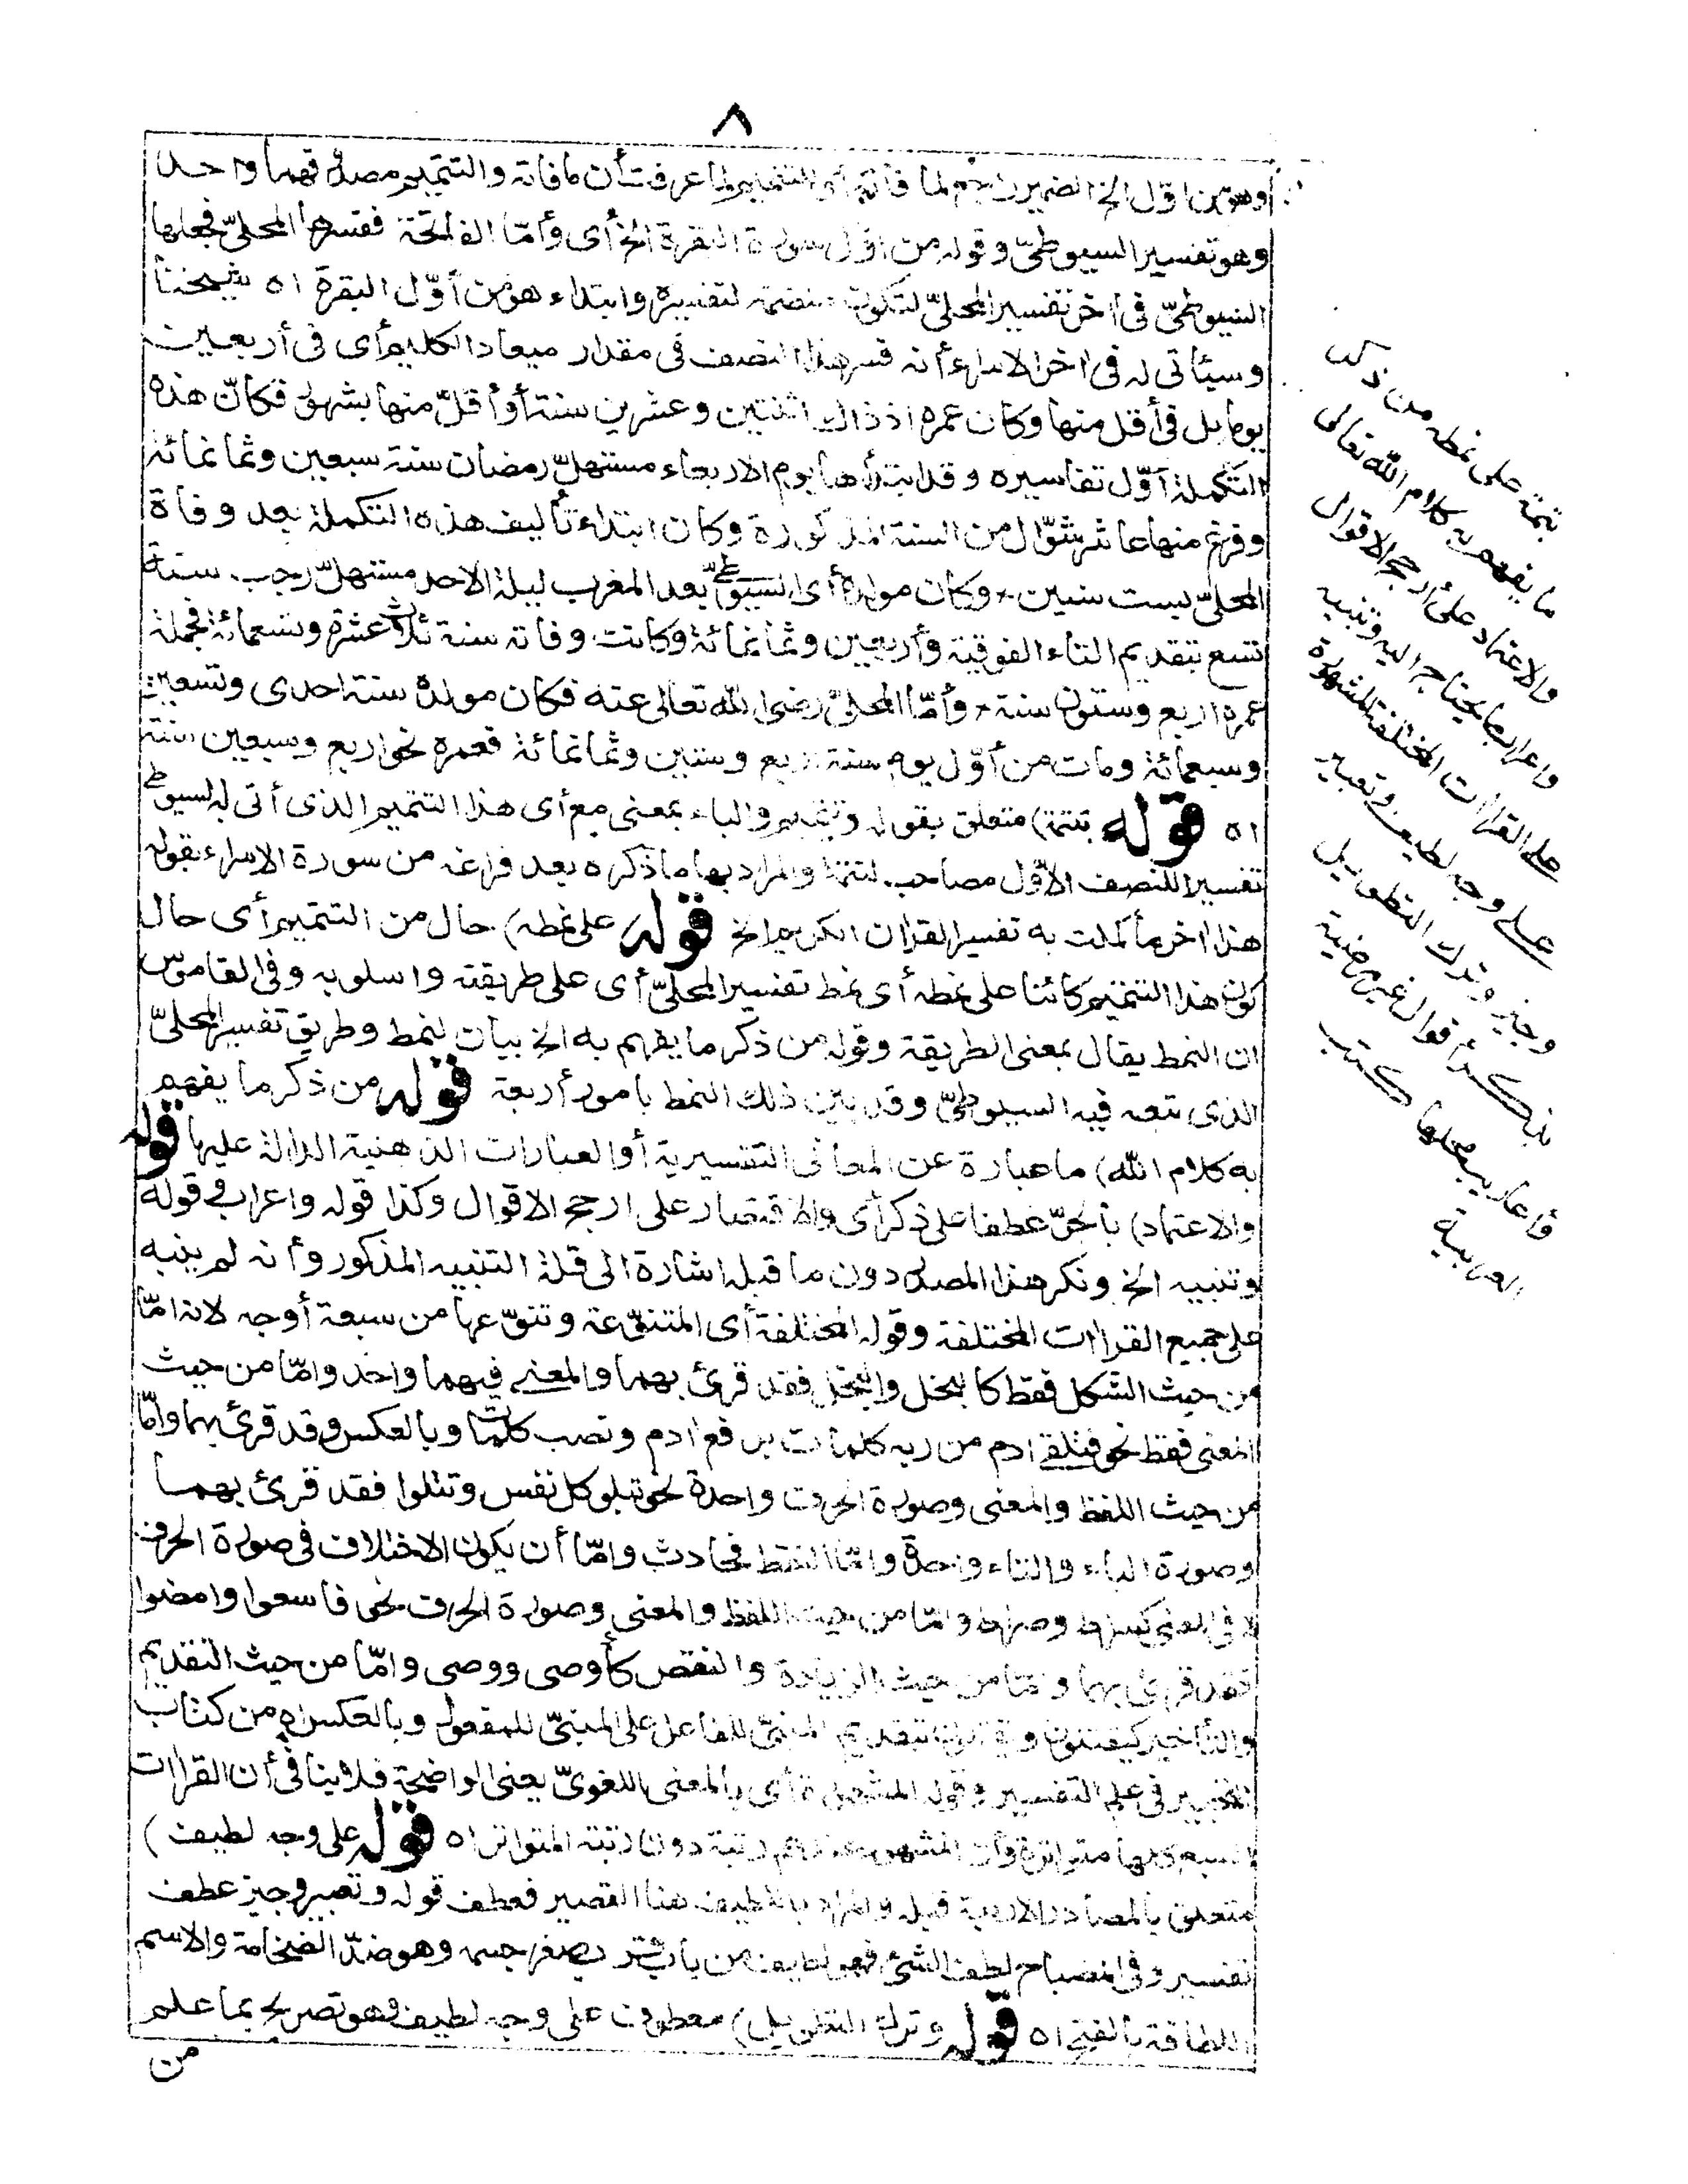 ٨
وهو من اول الخ الضمير راجع لما فاته أو التتميم لما عرفت أن ما فاته والتتميم مصدوقهما واحد
وهو تفسير السيوطىّ وقوله من اوّل سورة البقرة الخ أى وأمّا الفاتحة ففسرها المحلىّ فجعلها
السيوطىّ فى اخر تفسير المحلىّ لتكون منضمة لتفسيره وابتداء هو من أوّل البقرة اه شيخنا
وسيأتى له فى اخر الاسراء أنه فسر هذا النصف فى مقدار ميعاد الكليم أى فى أربعين
يوما بل فى أقل منها وكان عمره اذ ذاك اثنتين وعشرين سنة أو أقلّ منها بشهور فكانّ هذه
التكملة أوّل تفاسيره وقد ابتدأها يوم الاربعاء مستهلّ رمضان سنة سبعين وثمانمائة
وفرغ منها عاشر شوّال من السنة المذكورة وكان ابتداء تأليف هذه التكملة بعد وفاة
المحلىّ بست سنين وكان مولده أى السيوطىّ بعد المغرب ليلة الاحد مستهلّ رجب سنة
تسع بتقديم التاء الفوقية وأربعين وثمانمائة وكانت وفاته سنة ثلاث عشرة وتسعمائة فجملة
عمره اربع وستون سنة وأمّا المحلىّ رضى الله تعالى عنه فكان مولده سنة احدى وتسعين
وسبعمائة ومات من أوّل يوم سنة اربع وستين وثمانمائة فعمره نحو اربع وسبعين سنة
اه قوله بتتمة) متعلق بقوله وتتميم والباء بمعنى مع أى هذا التتميم الذى أتى به السيوطى
تفسيرا للنصف الأوّل مصاحب لتتمة والمراد بها ما ذكره بعد فراغه من سورة الاسراء بقوله
هذا اخر ما كملت به تفسير القران الكريم الخ قوله على نمطه) حال من التتميم أى حال
كون هذا التتميم كائنا على نمطه أى نمط تفسير المحلىّ أى على طريقته واسلوبه وفى القاموس
ان النمط يقال بمعنى الطريقة وقوله من ذكر ما يفهم به الخ بيان لنمط وطريق تفسير المحلىّ
الذى تبعه فيه السيوطىّ وقد بين ذلك النمط بامور أربعة قوله من ذكر ما يفهم
به كلام الله) ما عبارة عن المعانى التفسيرية أو العبارات الذهنية الدالة عليها قوله
والاعتماد) بالجرّ عطفا على ذكر أى والاقتصار على ارجح الاقوال وكذا قوله واعراب وقوله
وتنبيه الخ ونكر هذا المصدر دون ما قبله اشارة الى قلة التنبيه المذكور وأنه لم ينبه
على جميع القراات المختلفة وقوله المختلفة أى المتنوّعة وتنوّعها من سبعة أوجه لانه امّا
من حيث الشكل فقط كالبخل والبخل فقد قرئ بهما والمعنى فيهما واحد وامّا من حيث
المعنى فقط نحو فتلقى ادم من ربه كلمات برفع ادم ونصب كلمات وبالعكس وقد قرئ بهما وامّا
من حيث اللفظ والمعنى وصورة الحرف واحدة نحو تبلو كل نفس وتتلوا فقد قرئ بهما
وصورة الباء والتاء واحدة وامّا النقط فحادث وامّا أن يكون الاختلاف فى صورة الحرف
لا فى المعنى كسراط وصراط وامّا من حيث اللفظ والمعنى وصورة الحرف نحو فاسعوا وامضوا
فقد قرئ بهما وامّا من حيث الزيادة والنقص كأوصى ووصى وامّا من حيث التقديم
والتأخير كيقتلون ويقتلون بتقديم المبنىّ للفاعل على المبنىّ للمفعول وبالعكس اه من كتاب
التحبير فى علم التفسير وقوله المشهورة أى بالمعنى اللغوىّ يعنى الواضحة فلا ينافى أن القراات
السبع كلها متواترة وأن المشهور عندهم رتبة دون رتبة المتواتر اه قوله على وجه لطيف)
متعلق بالمصادر الاربعة قبله والمراد باللطيف هنا القصير فعطف قوله وتعبير وجيز عطف
تفسير وفى المصباح لطف الشئ فهو لطيف من باب قرب صغر جسمه وهو ضدّ الضخامة والاسم
اللطافة بالفتح اه قوله وترك التطويل) معطوف على وجه لطيف وهو تصريح بما علم
من
بتتمة على نمطه من ذكر
ما يفهم به كلام الله تعالى
والاعتماد على أرجح الاقوال
واعراب ما يحتاج اليه وتنبيه
على القراات المختلفة المشهورة
على وجه لطيف وتعبير
وجيز وترك التطويل
بذكر أقوال غير مرضية
وأعاريب محلها كتب
العربية